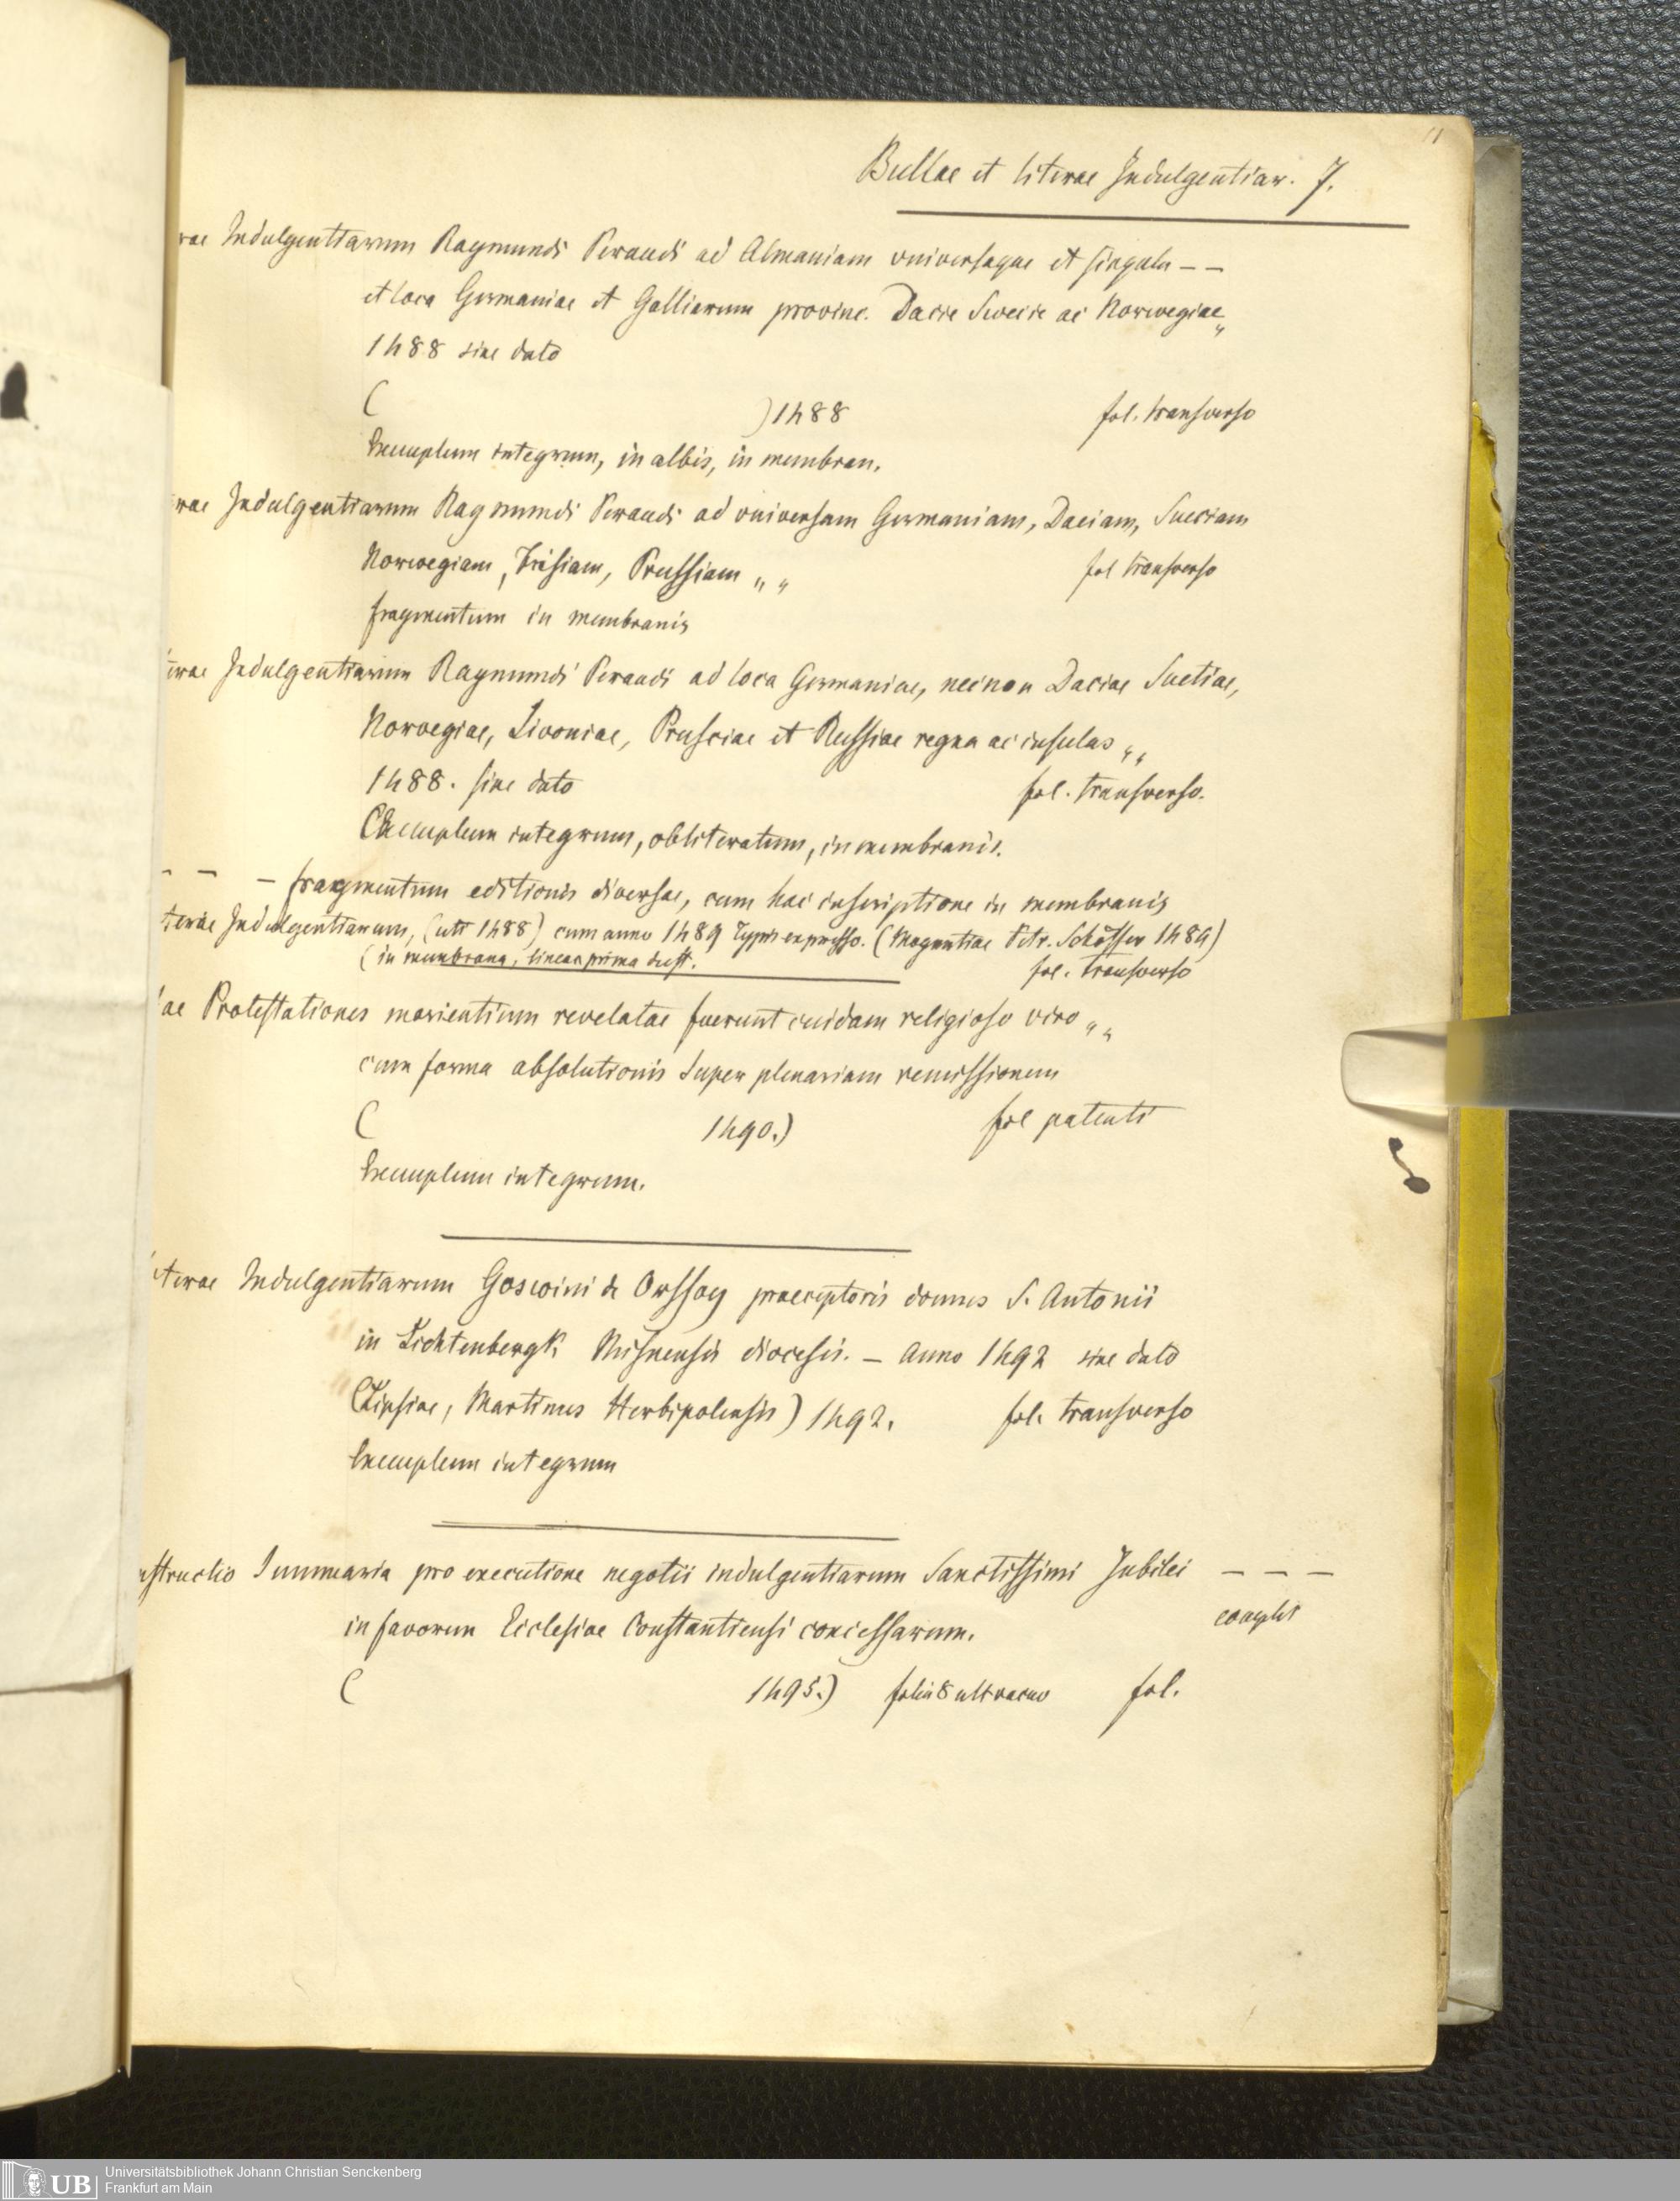 11
Bullae et literae Indulgentiar. 7.
rae Indulgentiarum Raymundi Peraudi ad Almaniam vniversaque et singula – –
et loca Germaniae et Galliarum provinc. Dacie Swecie ac Norwegiae „
1488 sine dato
( ) 1488 fol. transverso
Exemplum integrum, in albis, in membran.
rae Indulgentiarum Raymundi Peraudi ad vniversam Germaniam, Daciam, Sueciam
Norwegiam, Frisiam, Prussiam „ „ fol transverso
fragmentum in membranis
erae Indulgentiarum Raymundi Peraudi ad loca Germaniae, necnon Daciae Suetiae,
Norvegiae, Livoniae, Prusciae et Russiae regna ac insulas „ „
1488. sine dato fol. transverso.
Exemplum integrum, obliteratum, in membranis.
– – – fragmentum editionis diversae, cum hac inscriptione in membranis
terae Indulgentiarum, (uti 1488) cum anno 1489 typis expresso. (Moguntiae Petr. Schöffer 1489)
(in membrana, linea prima deest. fol. transverso
ae Protestationes morientium revelatae fuerunt cuidam religioso viro „ „
cum forma absolutionis super plenariam remissionem
( 1490.) fol patenti
Exemplum integrum.
iterae Indulgentiarum Goswini de Orssoy praeceptoris domus S. Antonii
in Lichtenbergk, Misnensis diocesis. – Anno 1492 sine dato
(Lipsiae, Martinus Herbipolensis) 1492. fol. transverso
Exemplum integrum
nstructio Summaria pro executione negotii indulgentiarum Sanctissimi Jubilei – – –
in favorem Ecclesiae Constantiensi concessarum. complet
( 1495.) foliis 8 ult vacuo fol.
UB Universitätsbibliothek Johann Christian Senckenberg
Frankfurt am Main